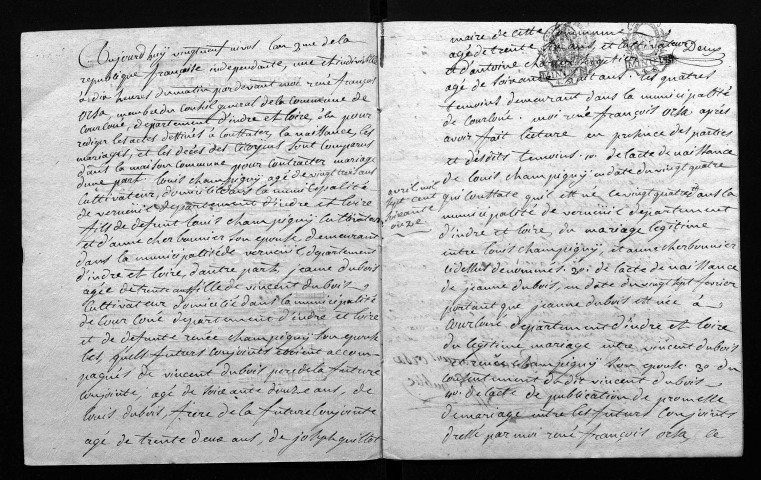 Aujourdhuy vingtneuf nivos lan 2me de la
republique françoise independante, une et indivisible
à dix heures du matin par devant moi rené françois
orsa, membre du Conseil general de la Commune de
Courloué, departement d'indre et loire, élu pour
rediger les actes destinés à Constater, la naissance, les
mariages, et les décès des Citoyens sont comparus
dans la maison commune pour contracter mariage
d'une part. louis champigny agé de vingt trois ans
Cultivateur, domicilié dans la municipalité
de verneuil departement d'indre et loire
fils de defunt louis champigny
et d'anne cherbonnier son epouse demeurant
dans la municipalité de verneuil departement
d'indre et loire, d'autre part, jeanne dubois
agée de trente ans fille de vincent dubois
Cultivateur domicilié dans la municipalité
de Courloué departement d'indre et loire
et de defunte renée champigny son epouse
les, quels futurs conjoints etoient accom-
pagnés de vincent dubois pere de la future
conjointe, agé de soixante douze ans, de
louis dubois, frere de la future Conjointe
agé de trente deux ans, de joseph guillot
maire de cette Commune
agé de trente ans, et cultivateur
Deux
et d'antoine
agé de soixante ans. les quatres
temoins demeurant dans la municipalité
de Courloué. moi rené françois orsa après
avoir fait lecture en presence des parties
et desdits temoins. 1o. de l'acte de naissance
de louis champigny, en date du vingt quatre
avril mil
sept cent
soixante
onze
qui constate qu'il est né ce vingt quatre dans la
municipalité de verneuil departement
d'indre et loire, du mariage legitime
entre louis champigny, et anne cherbonnier
cidessus denommés. 2o. de l'acte de naissance
de jeanne dubois, en date du vingt sept fevrier
portant que jeanne dubois est née à
Courloué departement d'indre et loire
du legitime mariage entre vincent dubois
et renée champigny son epouse 3o du
consentement dudit vincent dubois
4o. de l'acte de publication de promesse
de mariage entre les futurs Conjoints
dressé par moi rené françois orsa le